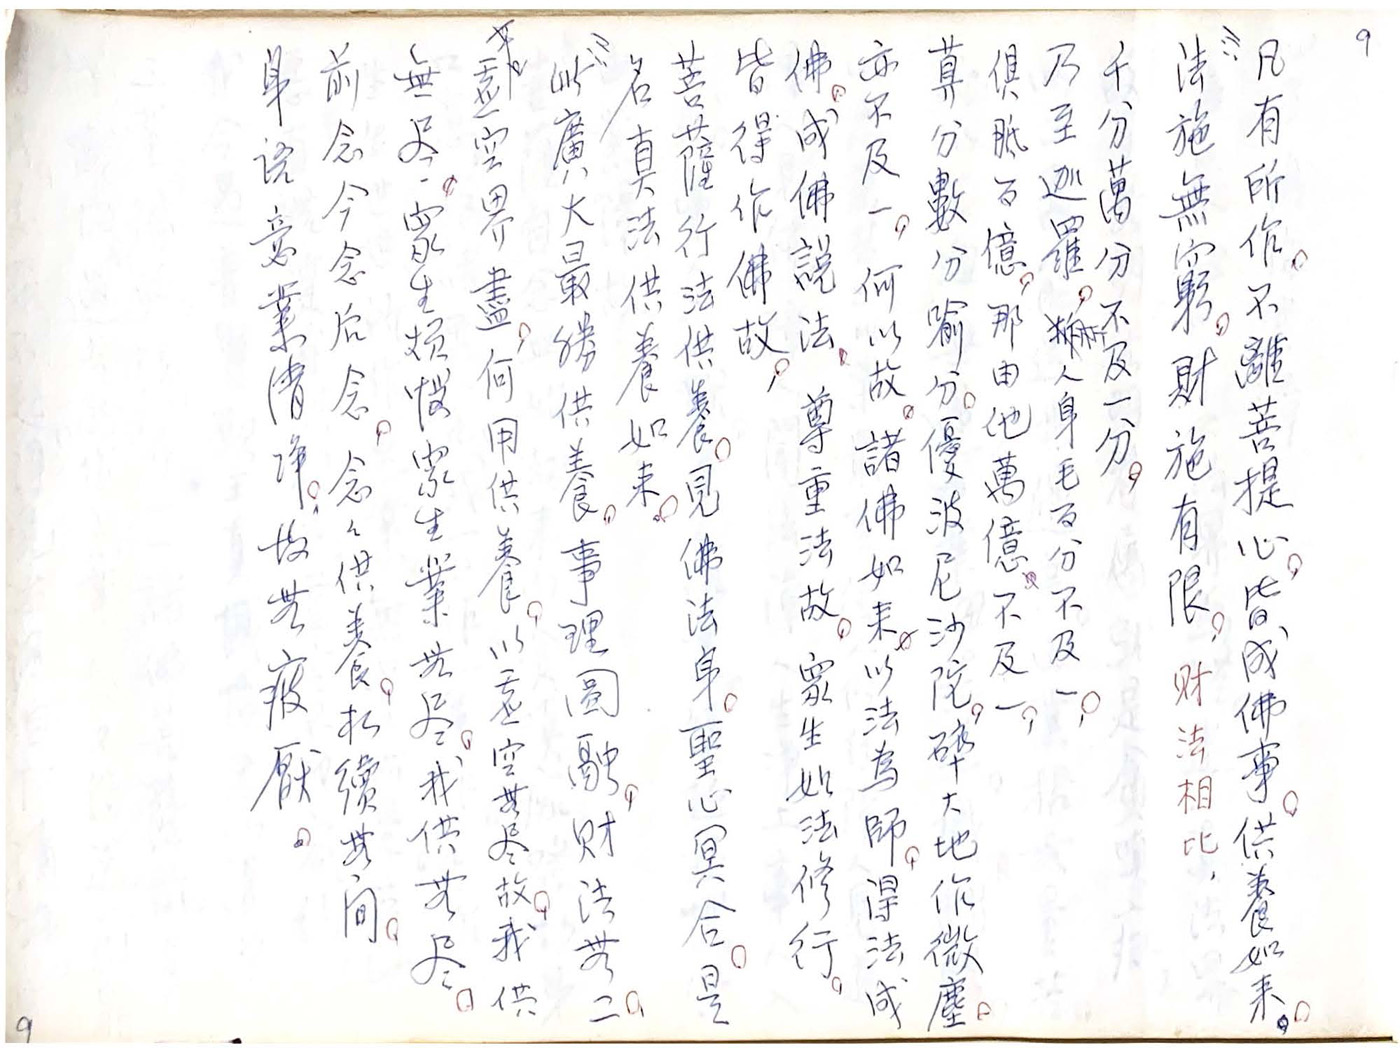 9
凡有所作，不離菩提心，皆成佛事。供養如來。
法施無窮，財施有限，财法相比，
千分萬分不及一分，
乃至迦羅，析人身毛百分不及一，
俱胝百億，那由他萬億，不及一，
算分數分喻分，優波尼沙陀，碎大地作微塵，
亦不及一，何以故，諸佛如来，以法為師，得法成
佛，成佛説法，尊重法故，眾生如法修行，
皆得作佛故，
菩薩行法供養，見佛法身，聖心冥合，是
名真法供養如来。
此廣大最勝供養，事理圓融，财法无二，
虚空界盡，何用供養，以虚空无尽故，我供
無尽，眾生烦惱眾生業无尽，我供无尽，
前念今念后念，念々供養，相續无间，
身语意業清净，故无疲厭。
9